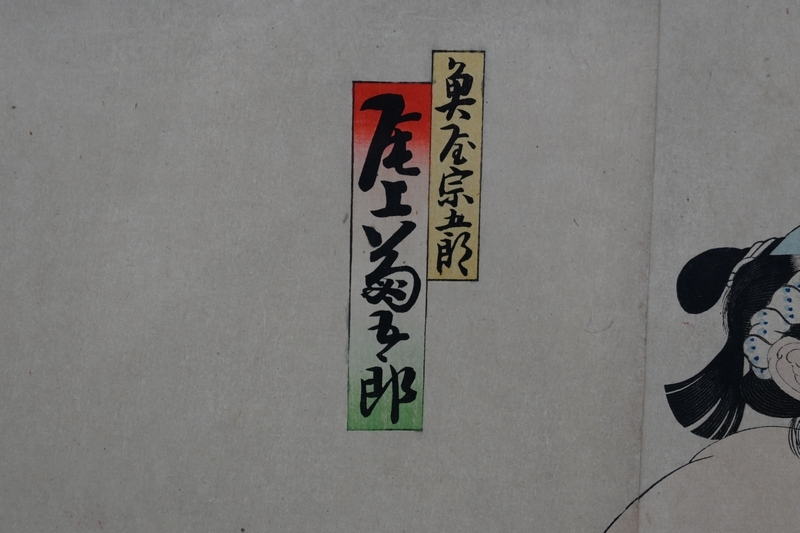 魚屋宗五郎
尾上菊五郎